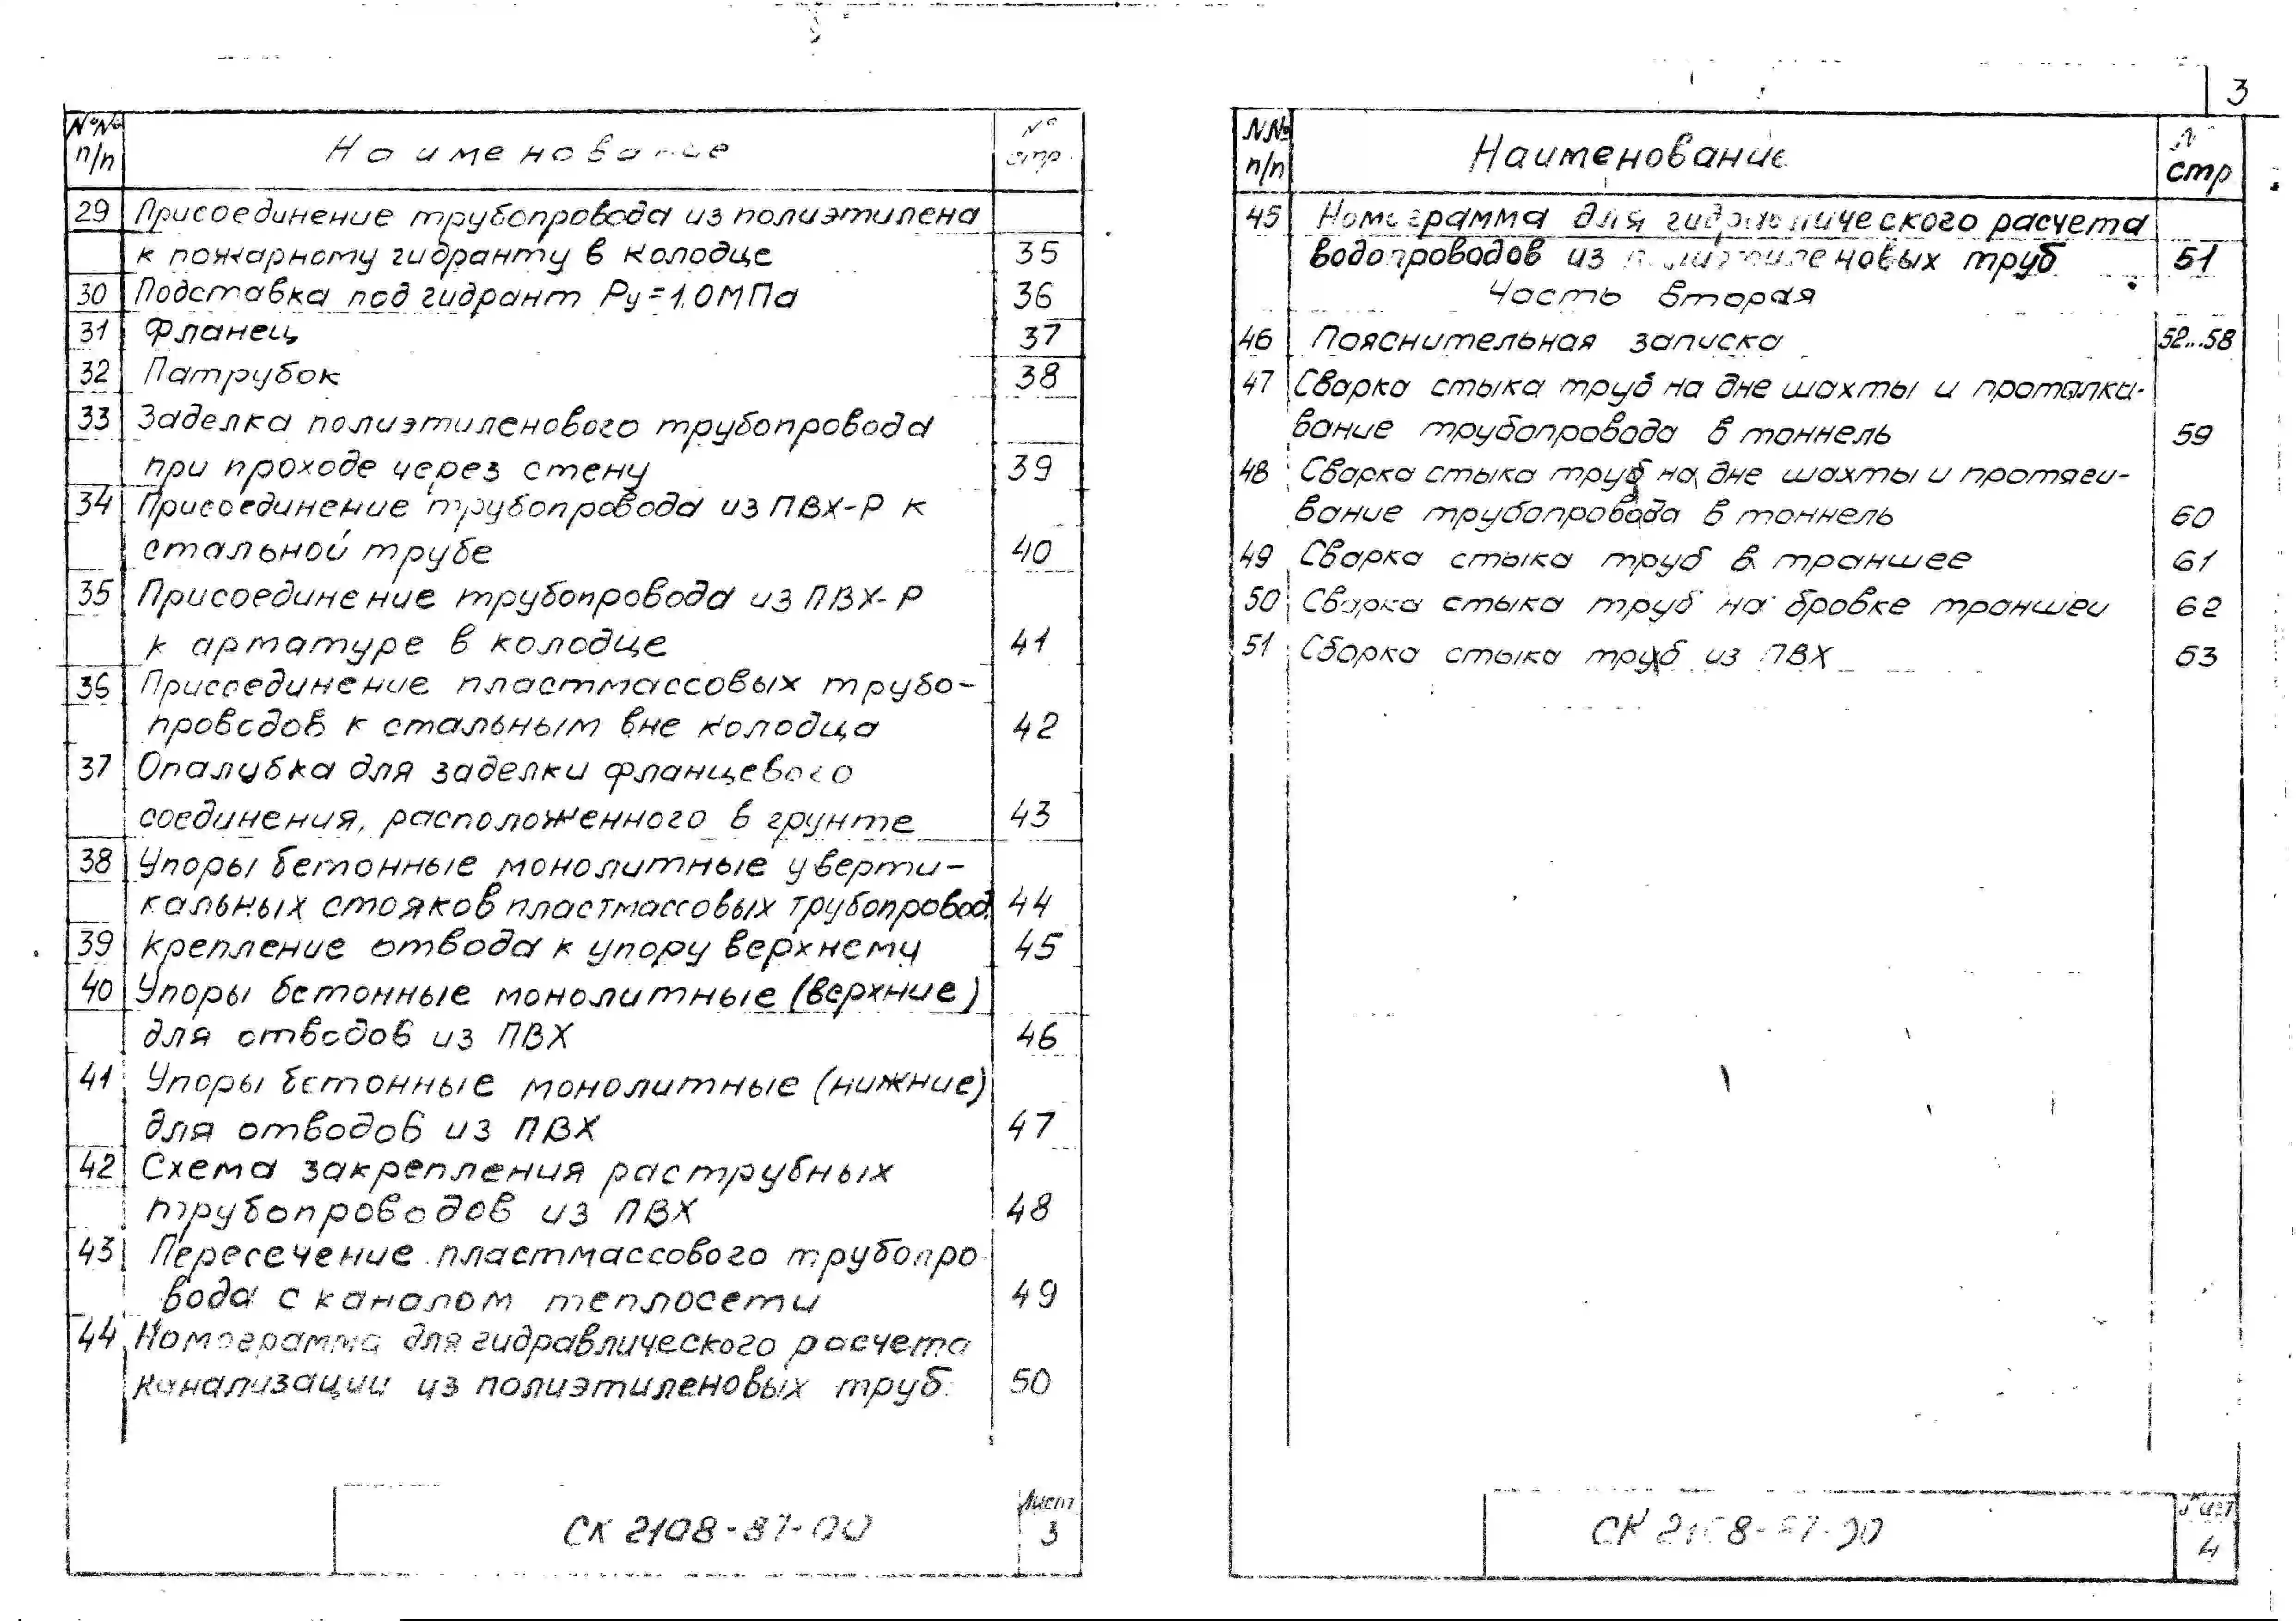 3
№№ п/п Наименование № стр.
29 Присоединение трубопровода из полиэтилена
к пожарному гидранту в колодце 35
30 Подставка под гидрант Ру=1.0МПа 36
31 Фланец 37
32 Патрубок 38
33 Заделка полиэтиленового трубопровода
при проходе через стену 39
34 Присоединение трубопровода из ПВХ-Р к
стальной трубе 40
35 Присоединение трубопровода из ПВХ-Р
к арматуре в колодце 41
36 Присоединение пластмассовых трубо-
проводов к стальным вне колодца 42
37 Опалубка для заделки фланцевого
соединения, расположенного в грунте 43
38 Упоры бетонные монолитные у верти-
кальных стояков пластмассовых трубопровод. 44
39 Крепление отвода к упору верхнему 45
40 Упоры бетонные монолитные (верхние)
для отводов из ПВХ 46
41 Упоры бетонные монолитные (нижние)
для отводов из ПВХ 47
42 Схема закрепления раструбных
трубопроводов из ПВХ 48
43 Пересечение пластмассового трубопро
вода с каналом теплосети 49
44 Номограмма для гидравлического расчета
канализации из полиэтиленовых труб. 50
СК 2108-87-00 Лист
3
№№ п/п Наименование № стр
45 Номограмма для гидравлического расчета
водопроводов из полиэтиленовых труб 51
Часть вторая
46 Пояснительная записка 52...58
47 Сварка стыка труб на дне шахты и проталки-
вание трубопровода в тоннель 59
48 Сварка стыка труб на дне шахты и протяги-
вание трубопровода в тоннель 60
49 Сварка стыка труб в траншее 61
50 Сварка стыка труб на бровке траншеи 62
51 Сборка стыка труб из ПВХ 63
СК 2108-87-00 Лист
4